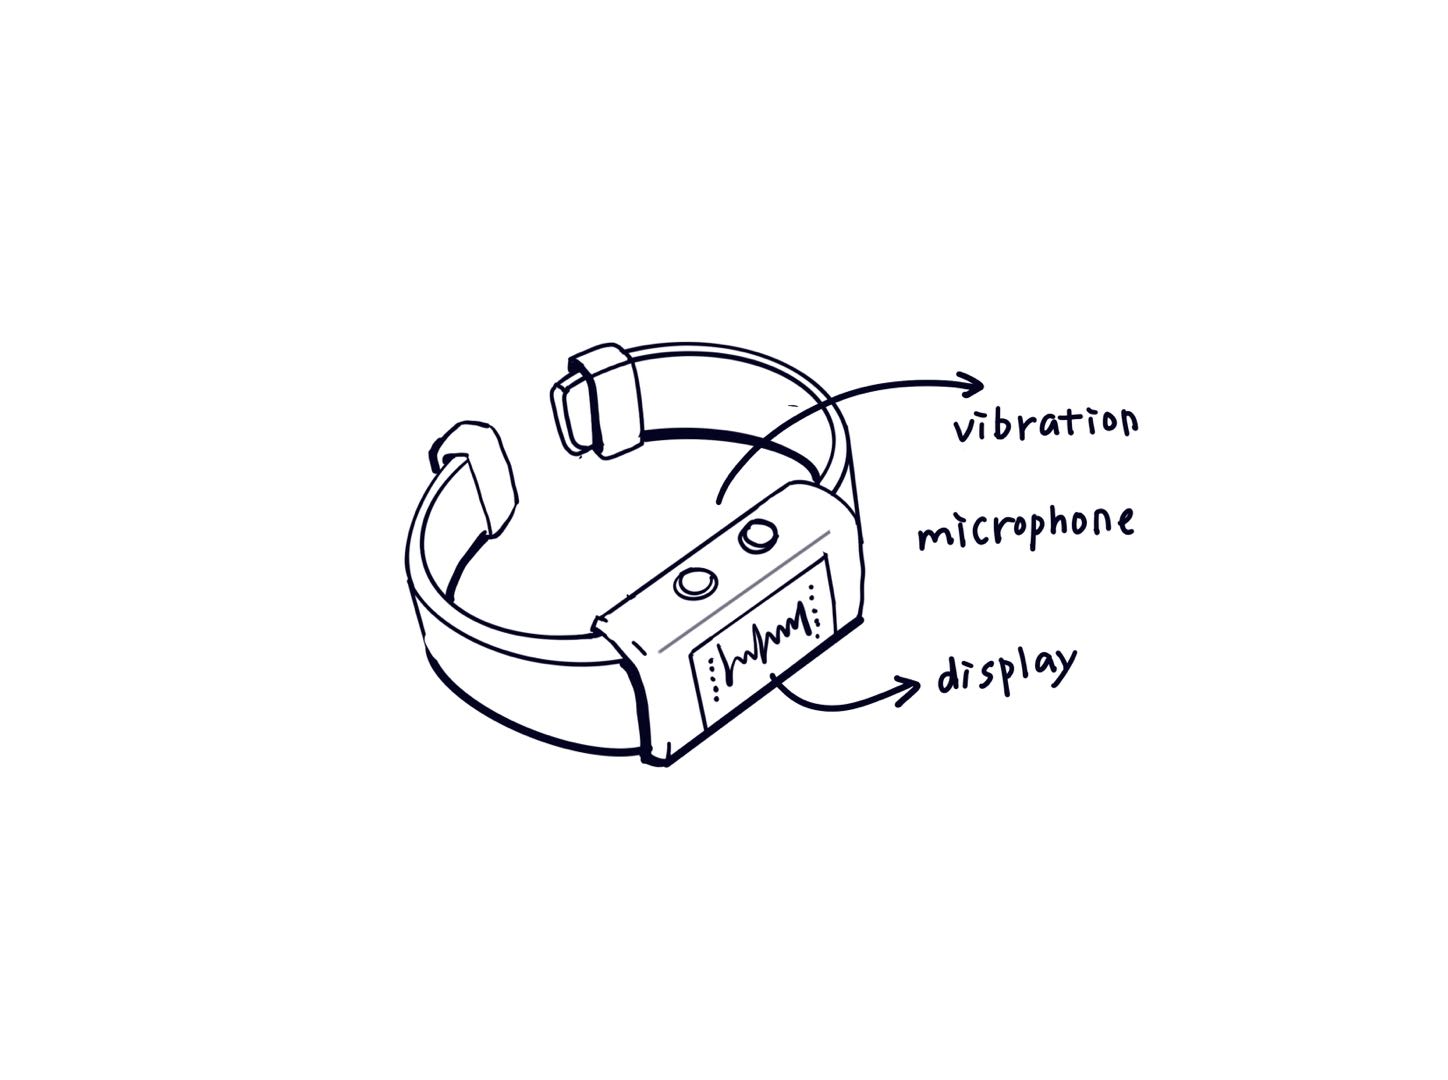 vibration
microphone
display